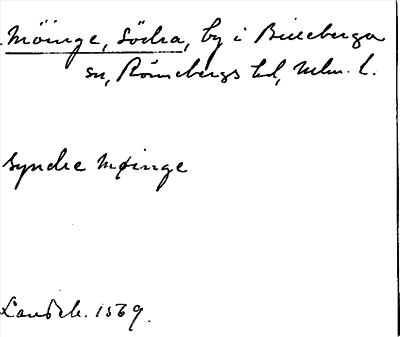 Möinge, Södra, by i Billeberga
sn, Rönnebergs hd, Mlm. l.
Syndre Møinge
Landeb. 1569.